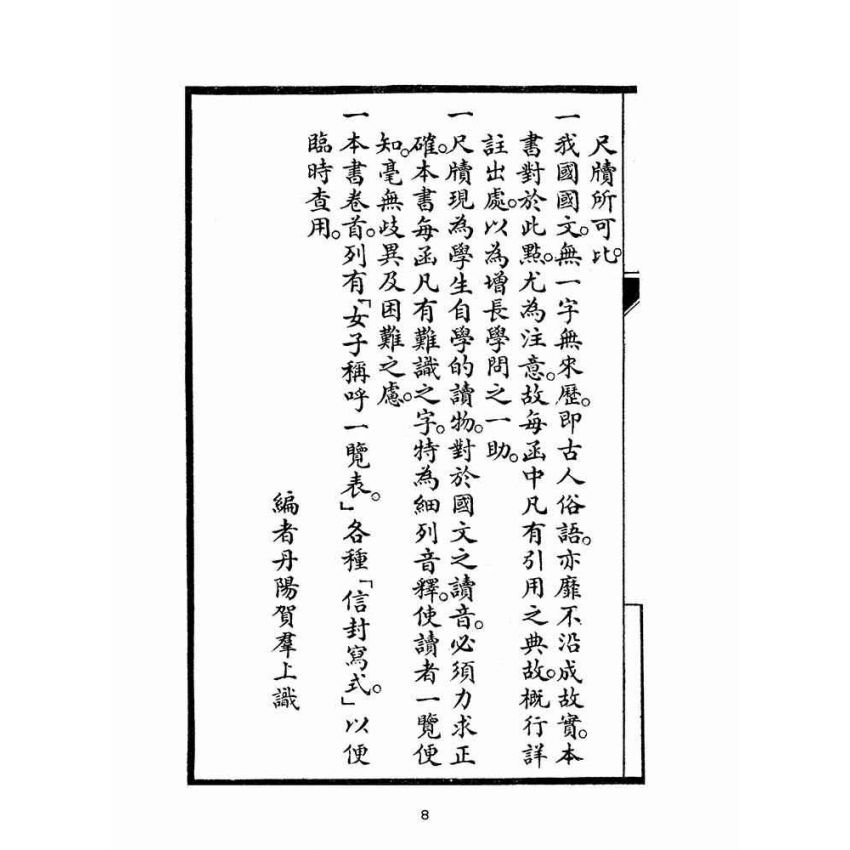 尺牘所可比。
一我國國文。無一字無來歷。即古人俗語。亦靡不沿成故實。本
書對於此點。尤為注意。故每函中凡有引用之典故。概行詳
註出處。以為增長學問之一助。
一尺牘現為學生自學的讀物。對於國文之讀音。必須力求正
確。本書每函凡有難識之字。特為細列音釋。使讀者一覽便
知。毫無歧異及困難之慮。
一本書卷首。列有「女子稱呼一覽表。」各種「信封寫式。」以便
臨時查用。
編者丹陽賀羣上識
8